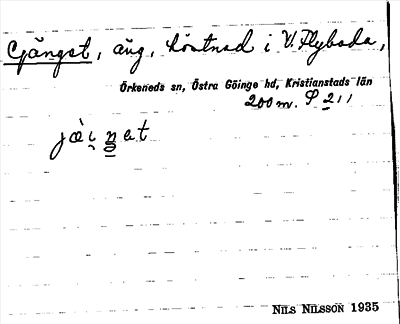 Gjängst, äng, höstnad i V. Flyboda,
Örkeneds sn, Östra Göinge hd, Kristianstads län
200 m. S 211
NILS NILSSON 1935